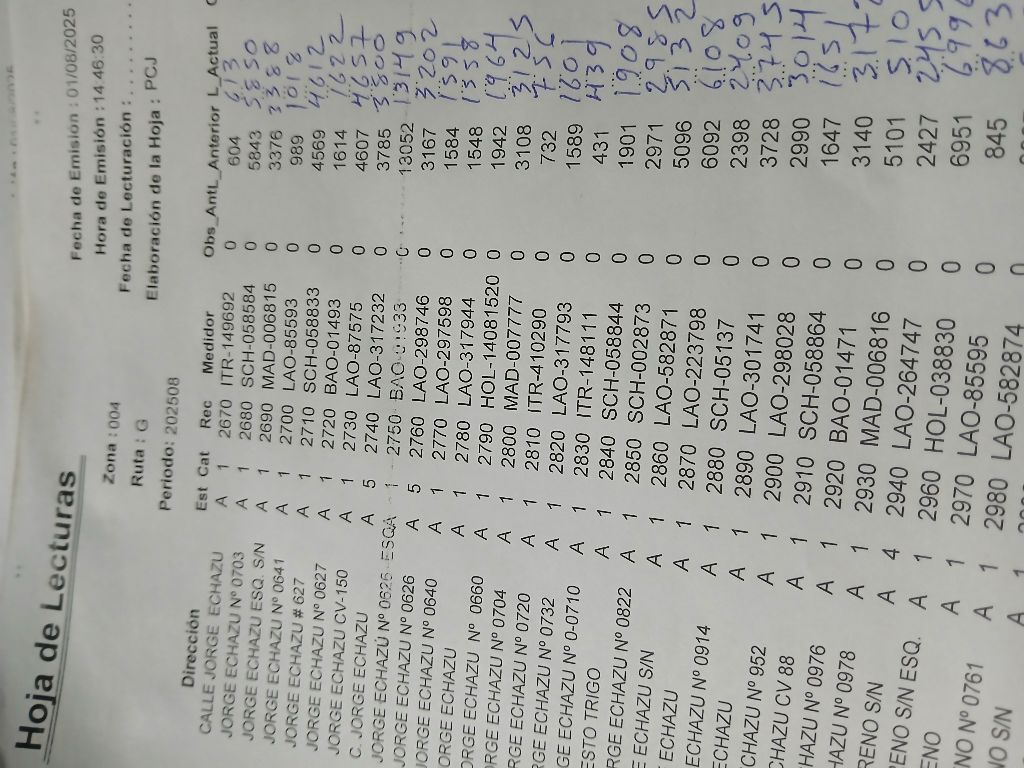 Hoja de Lecturas
Fecha de Emisión : 01/08/2025
Zona : 004 Hora de Emisión : 14:46:30
Ruta : G Fecha de Lecturación : . . . . . . . .
Periodo: 202508 Elaboración de la Hoja : PCJ
Dirección Est Cat Rec Medidor Obs_Ant L_Anterior L_Actual
CALLE JORGE ECHAZU A 1 2670 ITR-149692 0 604 613
JORGE ECHAZU Nº 0703 A 1 2680 SCH-058584 0 5843 5850
JORGE ECHAZU ESQ. S/N A 1 2690 MAD-006815 0 3376 3388
JORGE ECHAZU Nº 0641 A 1 2700 LAO-85593 0 989 1018
JORGE ECHAZU # 627 A 1 2710 SCH-058833 0 4569 4612
JORGE ECHAZU Nº 0627 A 1 2720 BAO-01493 0 1614 1622
JORGE ECHAZU CV-150 A 1 2730 LAO-87575 0 4607 4657
C. JORGE ECHAZU A 5 2740 LAO-317232 0 3785 3800
JORGE ECHAZU Nº 0625 ESQA 1 2750 BAO-01933 0 13052 13149
JORGE ECHAZU Nº 0626 A 5 2760 LAO-298746 0 3167 3202
JORGE ECHAZU Nº 0640 A 1 2770 LAO-297598 0 1584 1591
JORGE ECHAZU A 1 2780 LAO-317944 0 1548 1558
ORGE ECHAZU Nº 0660 A 1 2790 HOL-14081520 0 1942 1964
ORGE ECHAZU Nº 0704 A 1 2800 MAD-007777 0 3108 3125
RGE ECHAZU Nº 0720 A 1 2810 ITR-410290 0 732 756
RGE ECHAZU Nº 0732 A 1 2820 LAO-317793 0 1589 1601
GE ECHAZU Nº 0-0710 A 1 2830 ITR-148111 0 431 439
ESTO TRIGO A 1 2840 SCH-058844 0 1901 1908
RGE ECHAZU Nº 0822 A 1 2850 SCH-002873 0 2971 2985
E ECHAZU S/N A 1 2860 LAO-582871 0 5096 5132
ECHAZU A 1 2870 LAO-223798 0 6092 6108
ECHAZU Nº 0914 A 1 2880 SCH-05137 0 2398 2409
ECHAZU A 1 2890 LAO-301741 0 3728 3745
CHAZU Nº 952 A 1 2900 LAO-298028 0 2990 3014
CHAZU CV 88 A 1 2910 SCH-058864 0 1647 1651
HAZU Nº 0976 A 1 2920 BAO-01471 0 3140
HAZU Nº 0978 A 1 2930 MAD-006816 0 5101 510
RENO S/N A 4 2940 LAO-264747 0 2427 2455
ENO S/N ESQ. A 1 2960 HOL-038830 0 6951 6996
ENO A 1 2970 LAO-85595 0 845 863
NO Nº 0761 A 1 2980 LAO-582874 0
NO S/N A